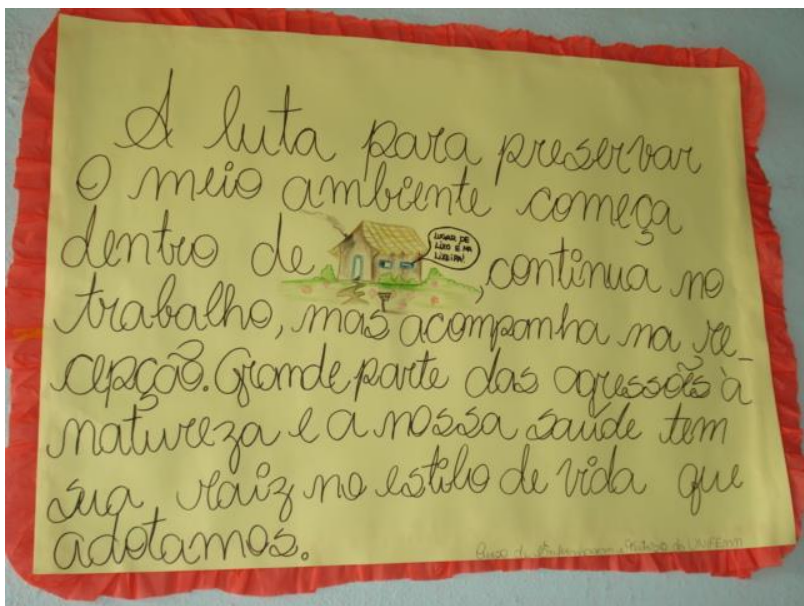 A luta para preservar
o meio ambiente começa
dentro de
LUGAR DE
LIXO É NA
LIXEIRA!
, continua no
trabalho, mas acompanha na re-
cepção. Grande parte das agressões à
natureza e a nossa saúde tem
sua raiz no estilo de vida que
adotamos.